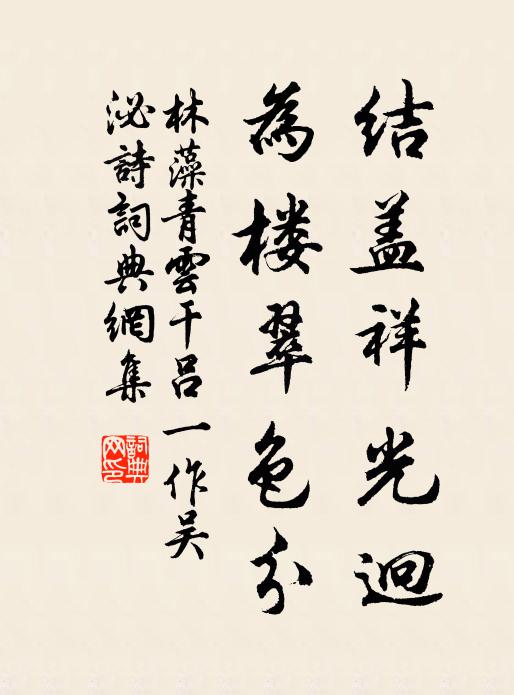 结盖祥光迥
為楼翠色分
林藻青雲干吕一作吴
泌詩詞典網集
詞典网印